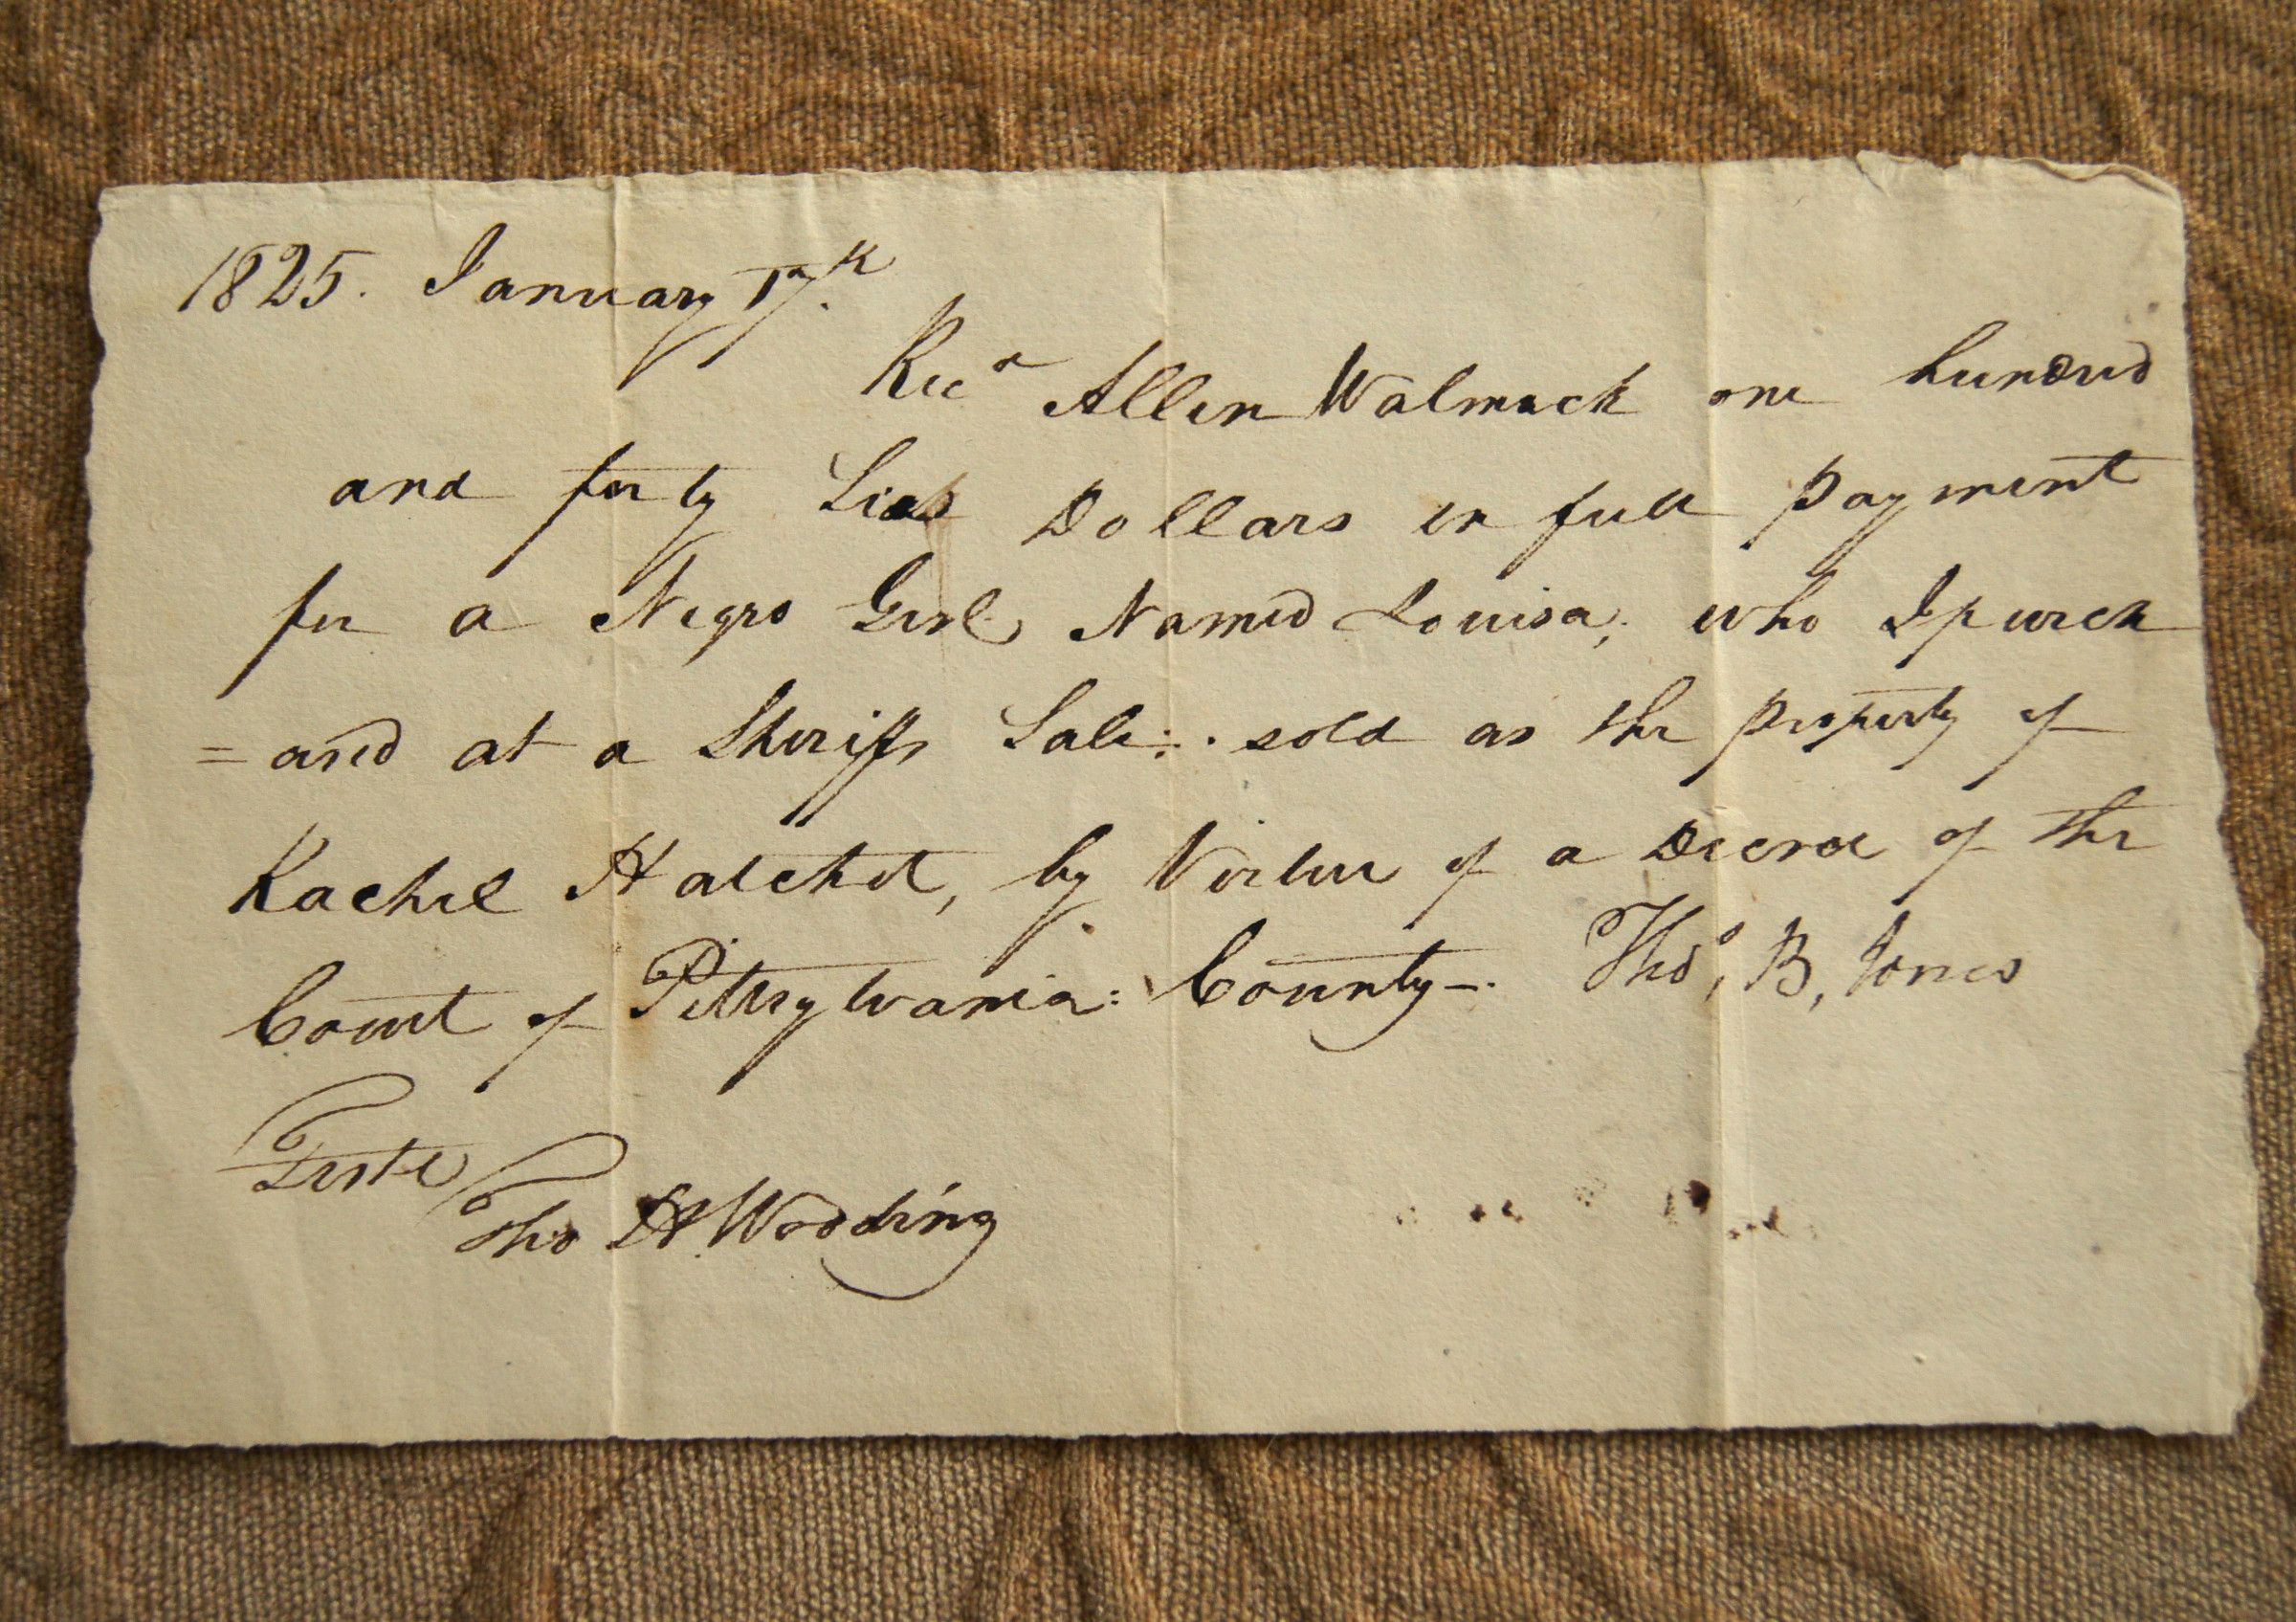 1825. January 17th.
Recd Allen Walmack one hundred
and forty Dollars in full payment
for a Negro Girl Named Louisa; who I purch
=ased at a Sheriffs Sale: sold as the property of
Rachel Hatchet, by Virtue of a Decree of the
Court of Pittsylvania: County-. Thos, B, Jones
Teste
Tho H Wooding